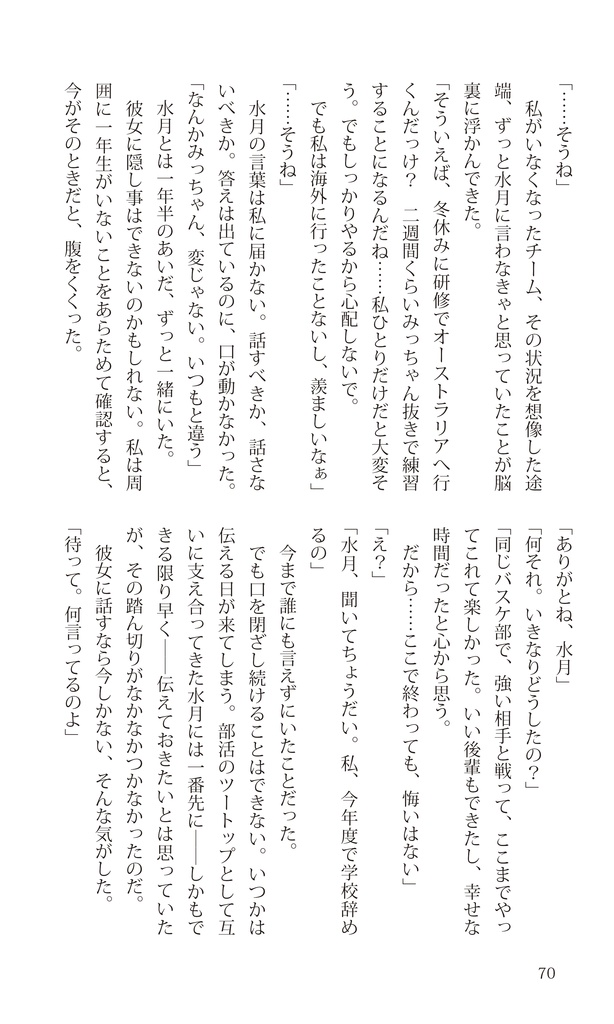 「……そうね」
　私がいなくなったチーム、その状況を想像した途
端、ずっと水月に言わなきゃと思っていたことが脳
裏に浮かんできた。
「そういえば、冬休みに研修でオーストラリアへ行
くんだっけ？　二週間くらいみっちゃん抜きで練習
することになるんだね……私ひとりだけだと大変そ
う。でもしっかりやるから心配しないで。
　でも私は海外に行ったことないし、羨ましいなぁ」
「……そうね」
　水月の言葉は私に届かない。話すべきか、話さな
いべきか。答えは出ているのに、口が動かなかった。
「なんかみっちゃん、変じゃない。いつもと違う」
　水月とは一年半のあいだ、ずっと一緒にいた。
　彼女に隠し事はできないのかもしれない。私は周
囲に一年生がいないことをあらためて確認すると、
今がそのときだと、腹をくくった。
「ありがとね、水月」
「何それ。いきなりどうしたの？」
「同じバスケ部で、強い相手と戦って、ここまでやっ
てこれて楽しかった。いい後輩もできたし、幸せな
時間だったと心から思う。
　だから……ここで終わっても、悔いはない」
「え？」
「水月、聞いてちょうだい。私、今年度で学校辞め
るの」
　今まで誰にも言えずにいたことだった。
　でも口を閉ざし続けることはできない。いつかは
伝える日が来てしまう。部活のツートップとして互
いに支え合ってきた水月には一番先に――しかもで
きる限り早く――伝えておきたいとは思っていた
が、その踏ん切りがなかなかつかなかったのだ。
　彼女に話すなら今しかない、そんな気がした。
「待って。何言ってるのよ」
70